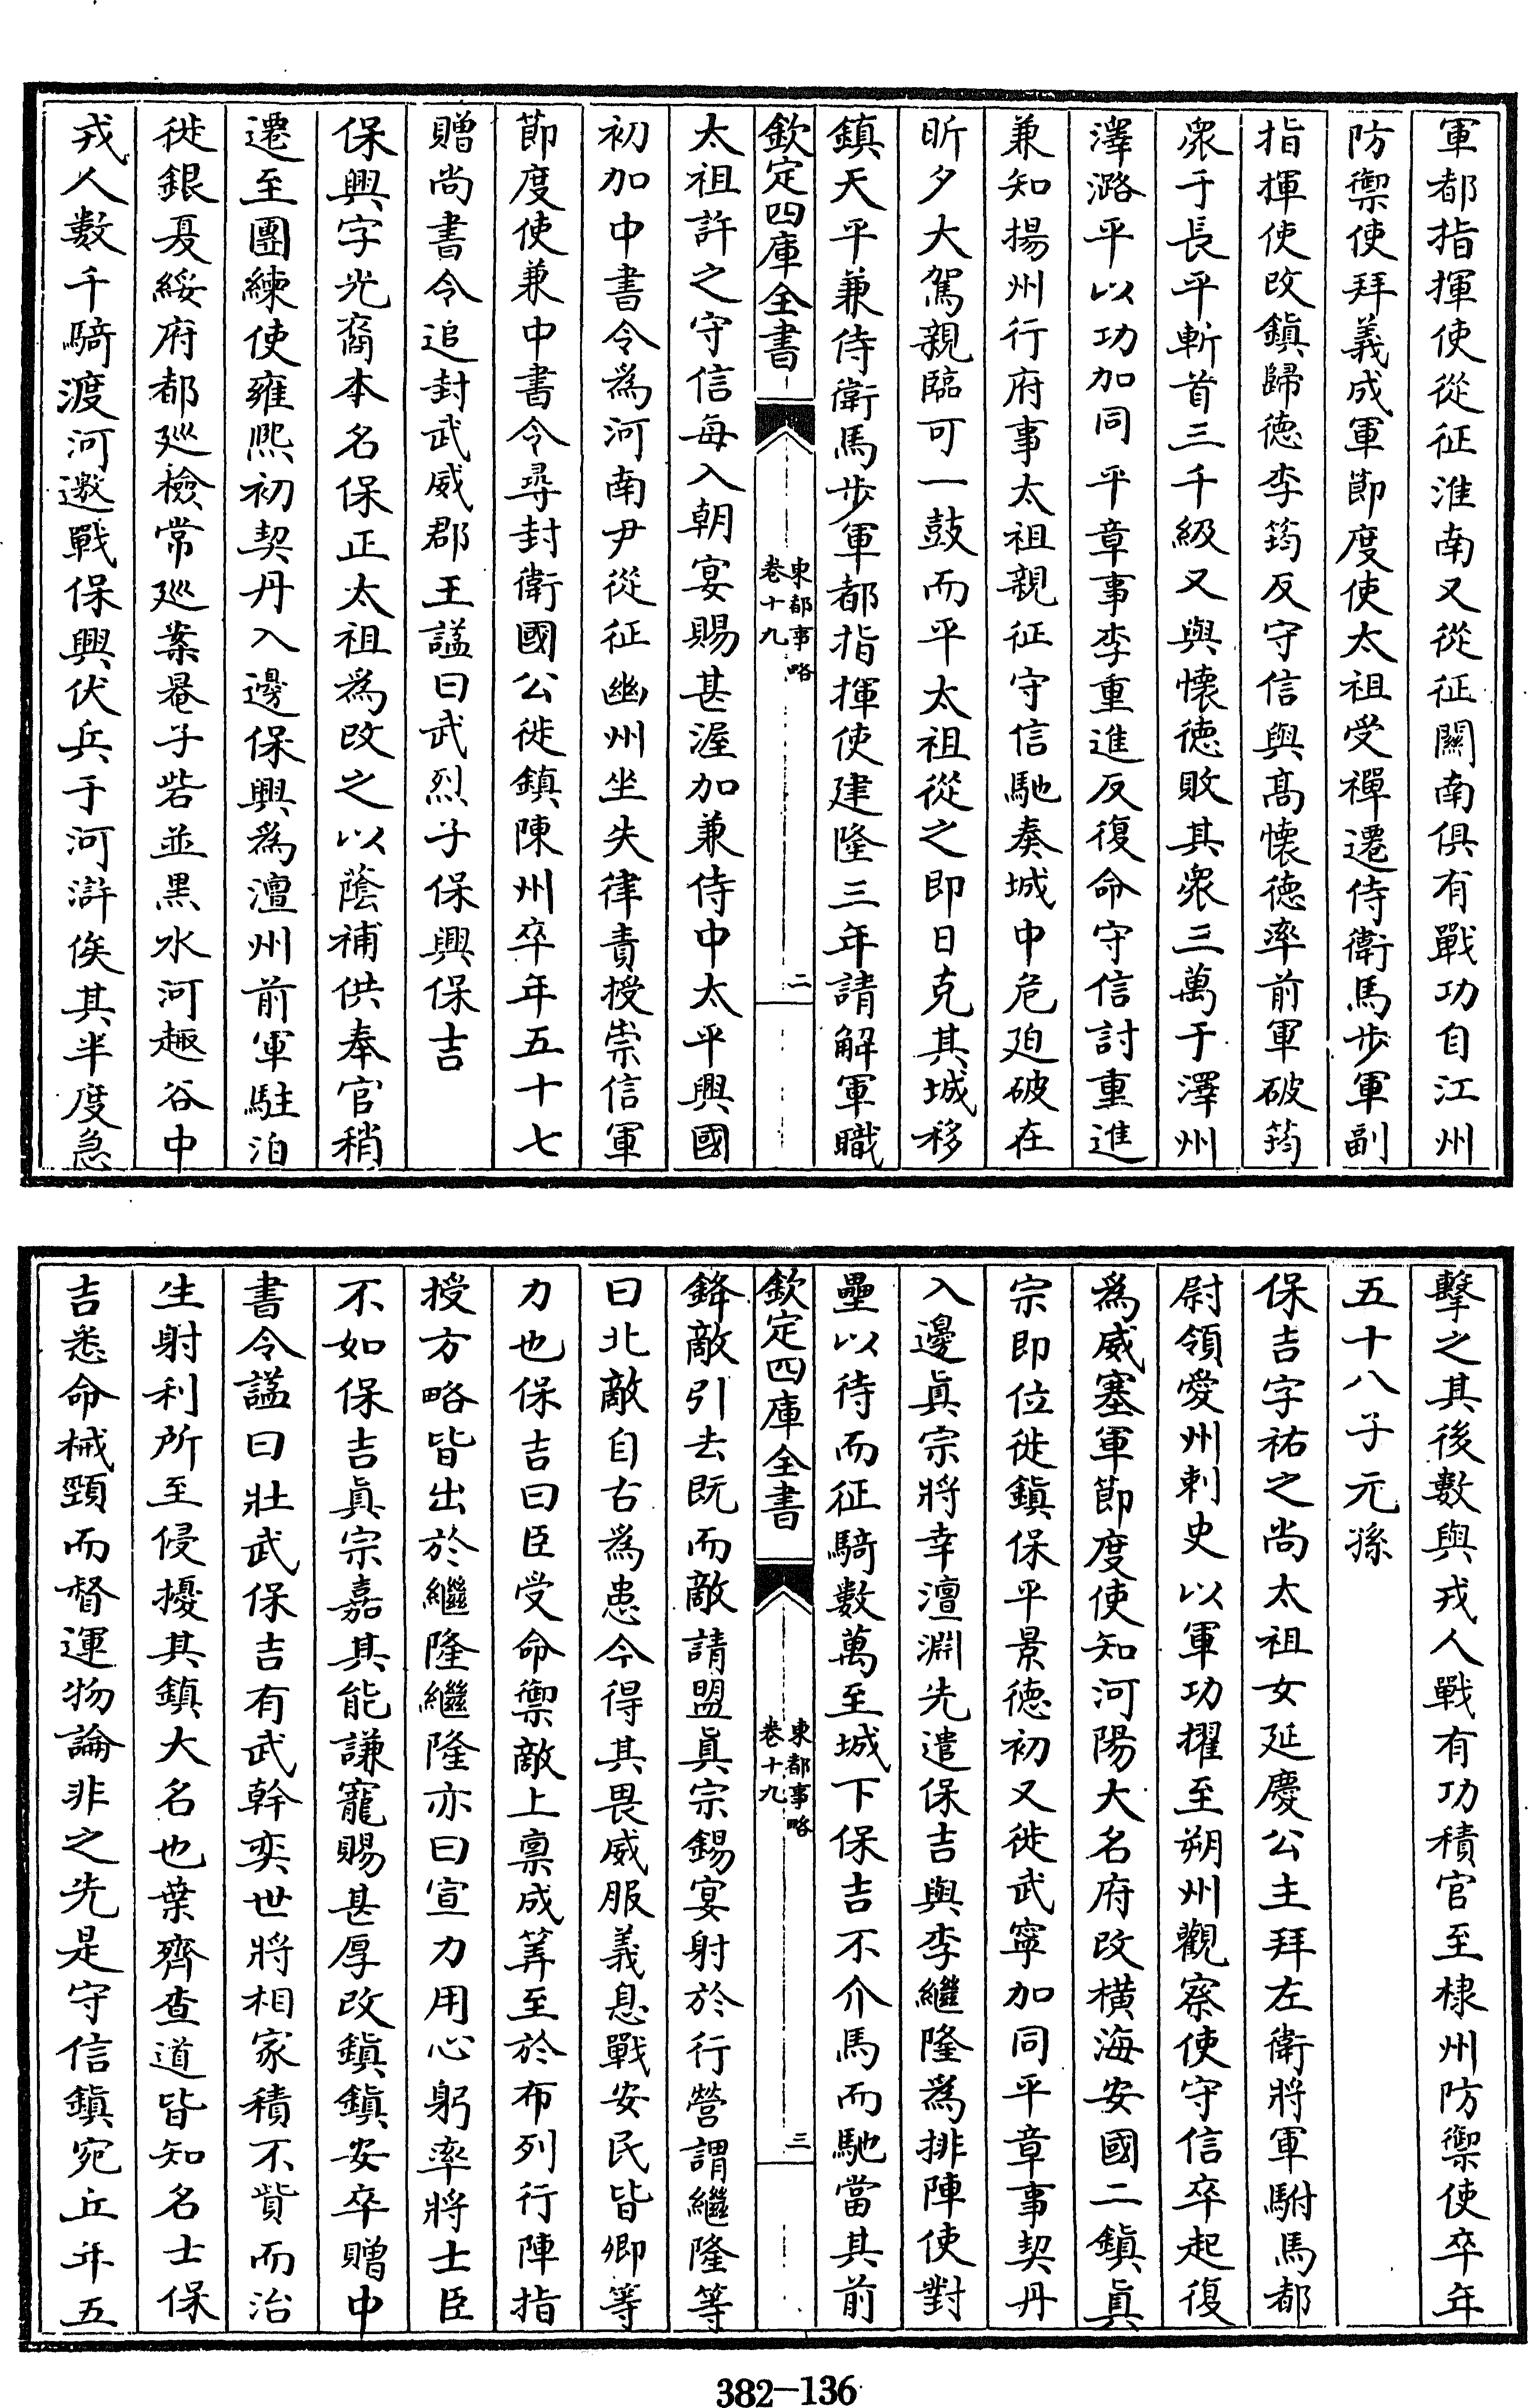 軍都指揮使從征淮南又從征關南俱有戰功自江州
防禦使拜義成軍節度使太祖受禪遷侍衛馬步軍副
指揮使改鎮歸德李筠反守信與髙懷德率前軍破筠
衆于長平斬首三千級又與懷德敗其衆三萬于澤州
澤潞平以功加同平章事李重進反復命守信討重進
兼知揚州行府事太祖親征守信馳奏城中危廹破在
昕夕大駕親臨可一鼓而平太祖從之即日克其城移
鎮天平兼侍衛馬步軍都指揮使建隆三年請解軍職
欽定四庫全書
東都事略
卷十九
二
太祖許之守信每入朝宴賜甚渥加兼侍中太平興國
初加中書令為河南尹從征幽州坐失律責授崇信軍
節度使兼中書令尋封衛國公徙鎮陳州卒年五十七
贈尚書令追封武威郡王諡曰武烈子保興保吉
保興字光裔本名保正太祖為改之以蔭補供奉官稍
遷至團練使雍熙初契丹入邊保興為澶州前軍駐泊
徙銀夏綏府都廵檢常廵案罨子砦並黒水河趣谷中
戎人數千騎渡河邀戰保興伏兵于河滸俟其半度急
擊之其後數與戎人戰有功積官至棣州防禦使卒年
五十八子元孫
保吉字祐之尚太祖女延慶公主拜左衛將軍駙馬都
尉領愛州刺史以軍功擢至朔州觀察使守信卒起復
為威塞軍節度使知河陽大名府改横海安國二鎮眞
宗即位徙鎮保平景德初又徙武寧加同平章事契丹
入邊眞宗將幸澶淵先遣保吉與李繼隆為排陣使對
壘以待而征騎數萬至城下保吉不介馬而馳當其前
欽定四庫全書
東都事略
卷十九
三
鋒敵引去既而敵請盟眞宗錫宴射於行營謂繼隆等
曰北敵自古為患今得其畏威服義息戰安民皆卿等
力也保吉曰臣受命禦敵上禀成筭至於布列行陣指
授方略皆出於繼隆繼隆亦曰宣力用心躬率將士臣
不如保吉眞宗嘉其能謙寵賜甚厚改鎮鎮安卒贈中
書令諡曰壯武保吉有武幹奕世將相家積不貲而治
生射利所至侵擾其鎮大名也葉齊查道皆知名士保
吉悉命械頸而督運物論非之先是守信鎮宛丘年五
382-136